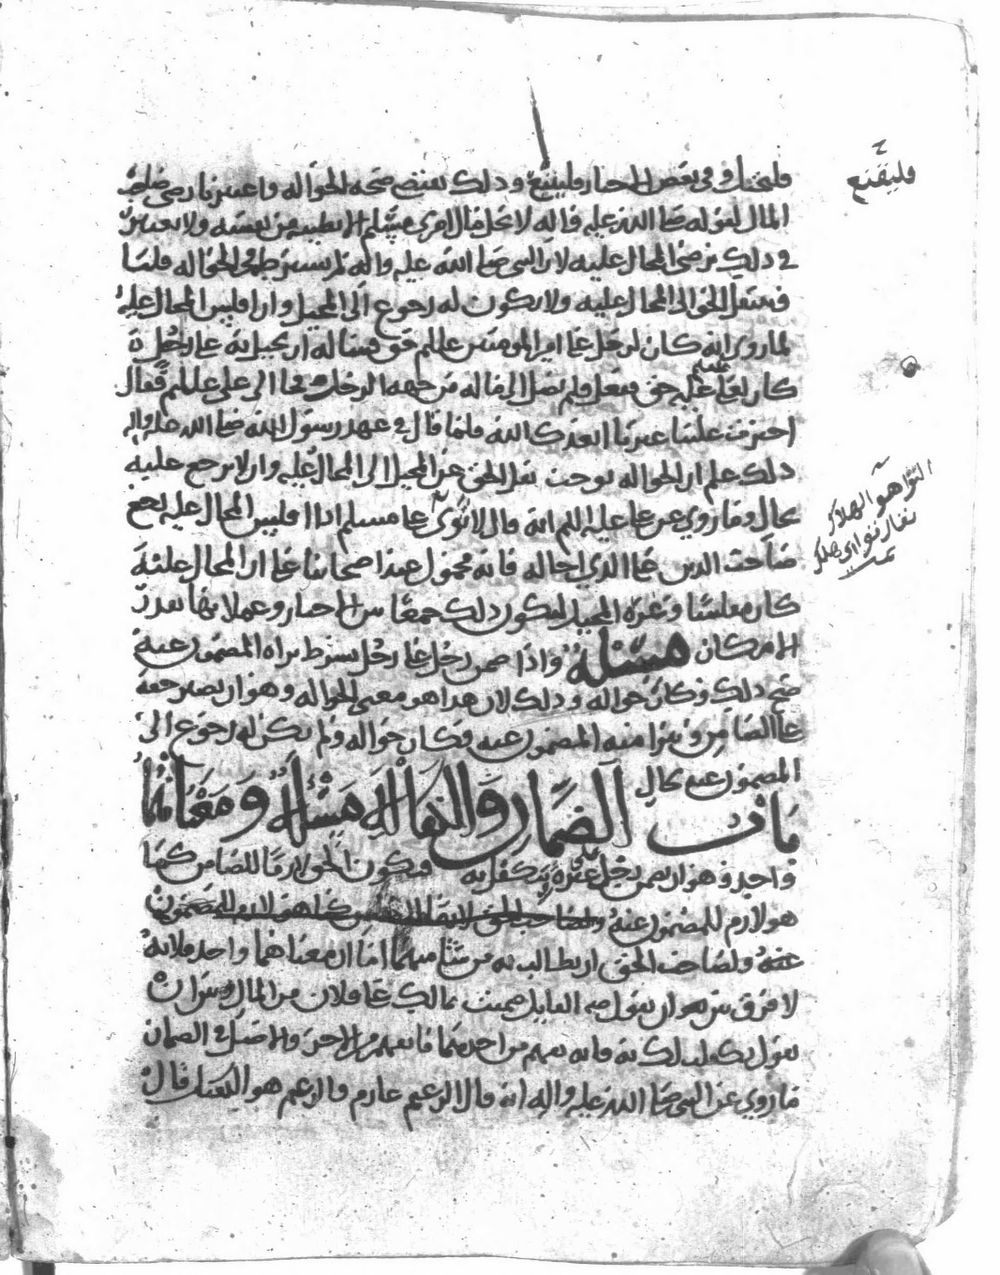 فليحتل وفي بعض الاخبار فليتبع وذلك يقتضي صحه الحواله واعتبرنا رضى صاحب
فليقنع
المال لقوله صلى الله عليه واله لا يحل مال امرئ مسلم الا بطيبه من نفسه ولا يعتبر
في ذلك رضى المحال عليه لان النبي صلى الله عليه واله لم يشترطه في الحواله قلنا
فينتقل الحق الى المحال عليه ولا يكون له رجوع الى المحيل وان افلس المحال عليه
لما روي انه كان لرجل على امير المومنين عليلم حق فساله ان يحيله به على رجل
كان له عليه حق ففعل فلم يصل الى ماله من جهه الرجل فجا الى علي عليلم فقال
اخترت علينا غيرنا ابعدك الله فلما قال في عهد رسول الله صلى الله عليه واله
ذلك علم ان الحواله توجب نقل الحق عن المحيل الى المحال عليه وان لا يرجع عليه
بحال وما روي عن علي عليه السلم انه قال لا توى على مسلم اذا افلس المحال عليه رجع
التوا هو الهلاك
يقال توا اي هلك
تمت
صاحب الدين على الذي احاله فانه محمول عند اصحابنا على ان المحال عليه
كان مفلسا وغره المحيل ليكون ذلك جمعا بين الاخبار وعملا بها بقدر
الامكان مسئله واذا ضمن رجل على رجل بشرط براه المضمون عنه
صح ذلك وكان حواله وذلك لان هذا هو معنى الحواله وهو ان يصير حقه
على الضامن ويبرا منه المضمون عنه فكان حواله ولم يكن له رجوع الى
المضمون عنه بحال
باب الضمان والكفاله مسئله ومعناهما
واحد وهو ان يضمن رجل عن غيره او يتكفل به فيكون الحق لازما للضامن كما
هو لازم للمضمون عنه
عنه ولصاحب الحق ان يطالب به من شا منهما اما ان معناهما واحد فلانه
لا فرق بين ان يقول القايل ضمنت مالك على فلان من المال وبين ان
يقول تكفلت لك به فانه يفهم من احدهما ما يفهم من الاخر والاصل في الضمان
ما روي عن النبي صلى الله عليه واله انه قال الزعيم غارم والزعيم هو الكفيل قال